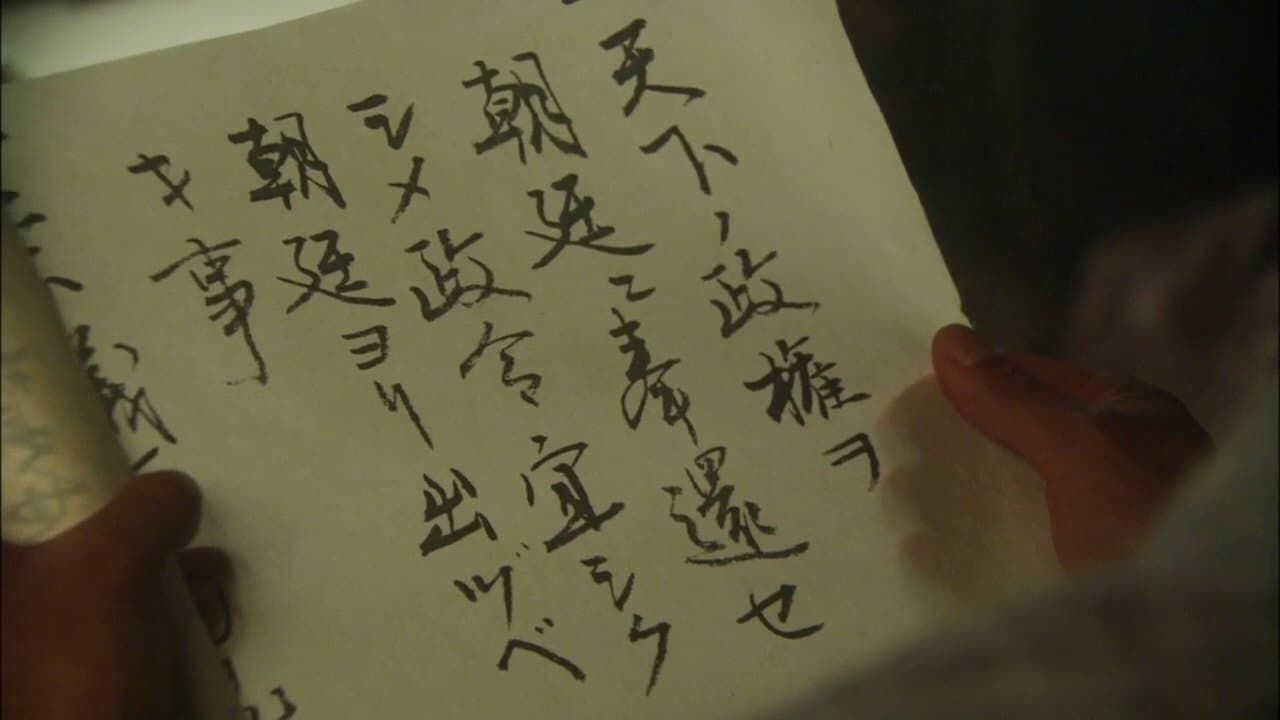 一天下ノ政権ヲ
朝廷ニ奉還セ
シメ政令宜シク
朝廷ヨリ出ヅベ
キ事